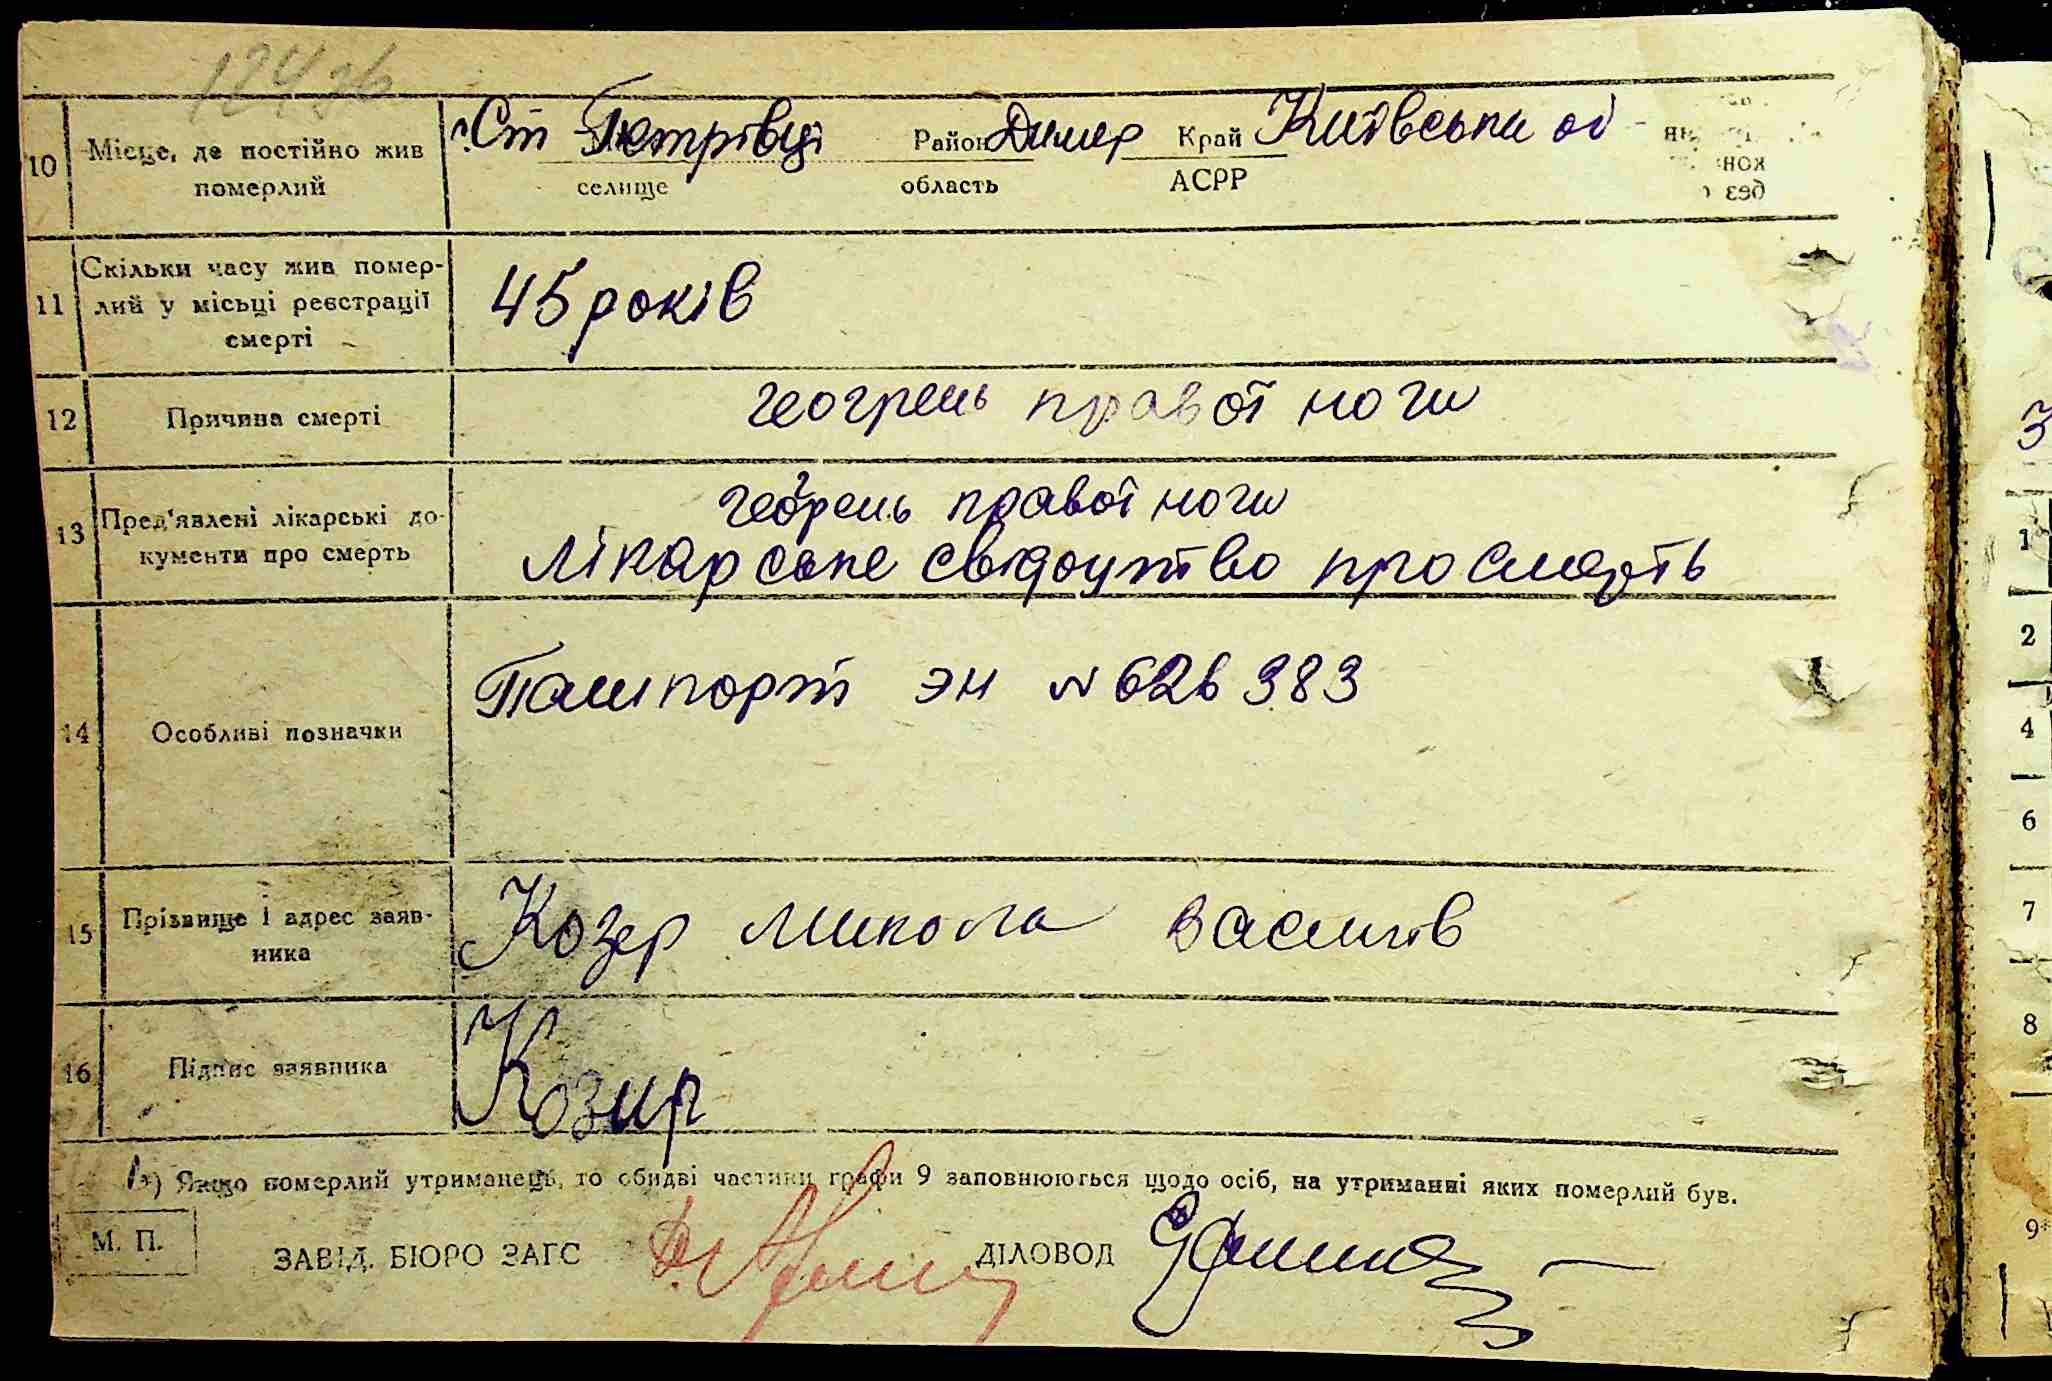 10 Місце, де постійно жив померлий
Ст Петрівці Район Димер Край Київська об
селище область АСРР
11 Скільки часу жив помер-
лий у місьці реєстрації
смерті
45 років
12 Причина смерті
геогрень правої ноги
13 Пред'явлені лікарські до-
кументи про смерть
геогрень правої ноги
лікарське свідоцтво про смерть
14 Особливі позначки
Пашпорт ЭН № 626383
15 Прізвище і адрес заяв-
ника
Козер Микола Василів
16 Підпис заявника
Козир
*) Якщо померлий утриманець, то обидві частини графи 9 заповнюються щодо осіб, на утриманні яких померлий був.
М. П.
ЗАВІД. БЮРО ЗАГС ДІЛОВОД